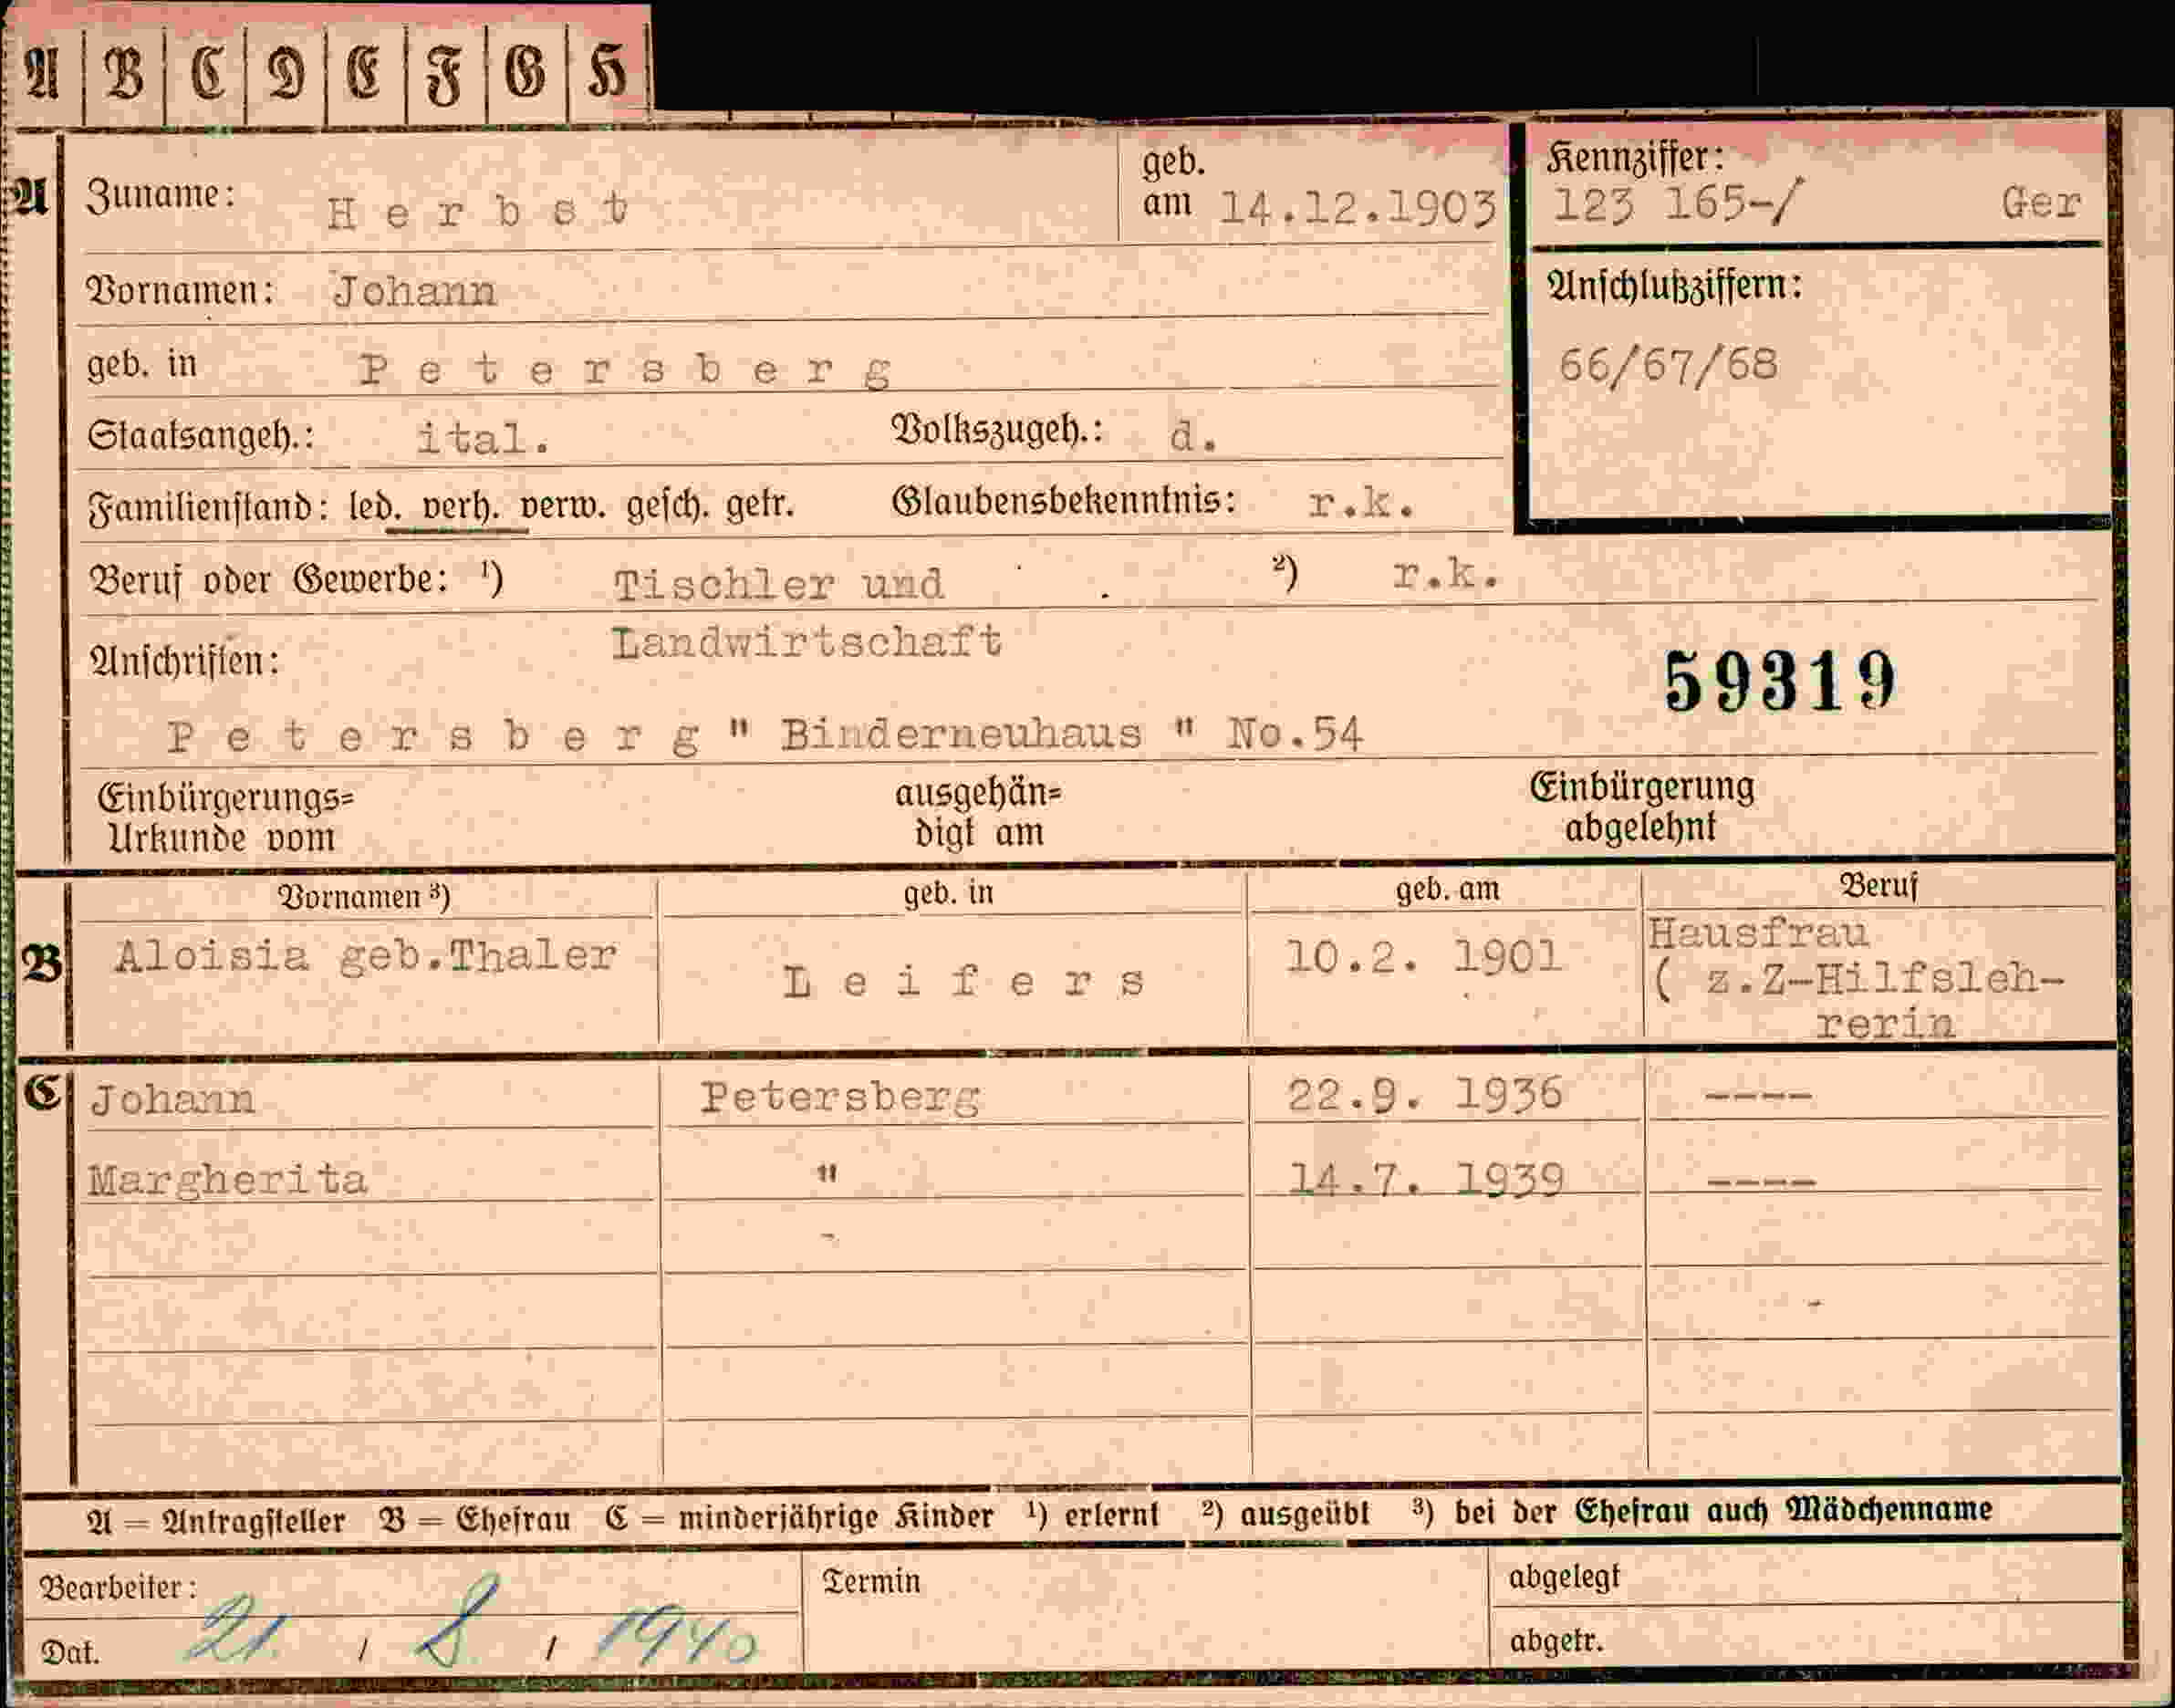 A B C D E F G H
A Zuname: Herbst geb. am 14.12.1903 Kennziffer: 123 165-/ Ger
Vornamen: Johann Anschlußziffern:
geb. in Petersberg 66/67/68
Staatsangeh.: ital. Volkszugeh.: d.
Familienstand: led. verh. verw. gesch. getr. Glaubensbekenntnis: r.k.
Beruf oder Gewerbe: ¹) Tischler und ²) r.k.
Landwirtschaft
Anschriften: 59319
Petersberg " Binderneuhaus " No.54
Einbürgerungs= ausgehän= Einbürgerung
Urkunde vom digt am abgelehnt
Vornamen ³) geb. in geb. am Beruf
B Aloisia geb.Thaler Leifers 10.2. 1901 Hausfrau
( z.Z-Hilfsleh-
rerin
C Johann Petersberg 22.9. 1936 ----
Margherita " 14.7. 1939 ----
A = Antragsteller B = Ehefrau C = minderjährige Kinder ¹) erlernt ²) ausgeübt ³) bei der Ehefrau auch Mädchenname
Bearbeiter: Termin abgelegt
Dat. 21. / 8. / 1940 abgetr.